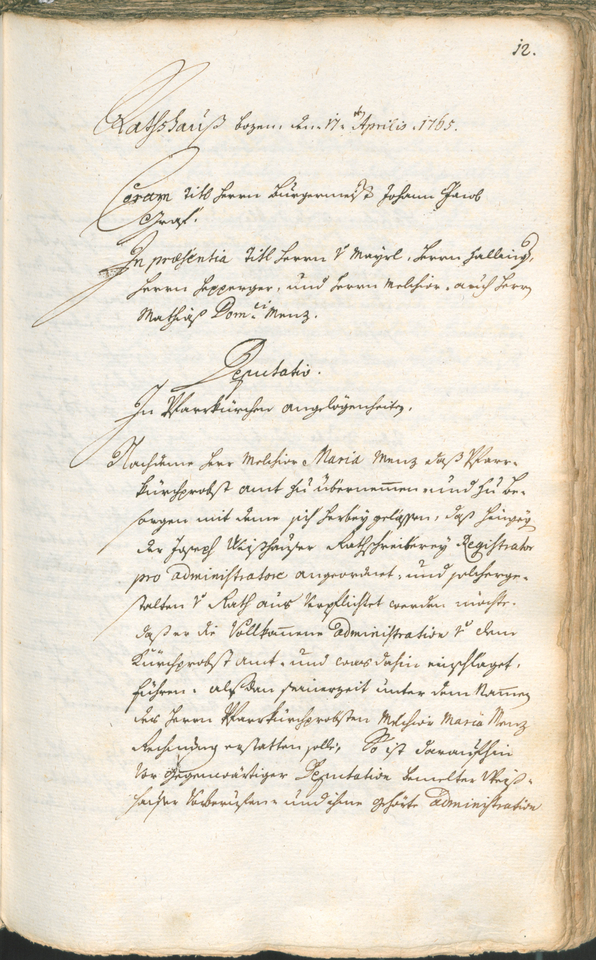 12.
Rathshauß bozen, den 17 ten Aprilis. 1765.
Coram titl Herrn Bürgermeist Johann Jacob
Graf.
In præsentia titl Herrn V Mayrl, Herrn
Herrn Hepperger, und Herrn Melchior, auch Herrn
Mathias Dom: ci Menz.
Deputatio.
In Pfarrkürchen angelögenheiten.
Nachdeme Herr Melchior Maria Menz das Pfarr-
kürchprobst amt zu übernemmen und zu be-
sorgen mit deme sich herbey gelassen, daß hinzu
der Joseph Weißhauser Rathschreiberey Registrator
pro administratore angeordnet, und solcherge-
stalten V Rath aus verpflichtet werden möchte,
daß er die vollkommene administration V dem
Kürchprobst amt, und was dahin einschlaget,
führen, alsdan seinerzeit unter dem Nammen
des Herrn Pfarrkürchprobsten Melchior Maria Menz
Rechnung erstatten solle, So ist daraufhin
vor gegenwärtiger Deputation bemelter Weiß-
hauser vorberuefen, und ihme administration